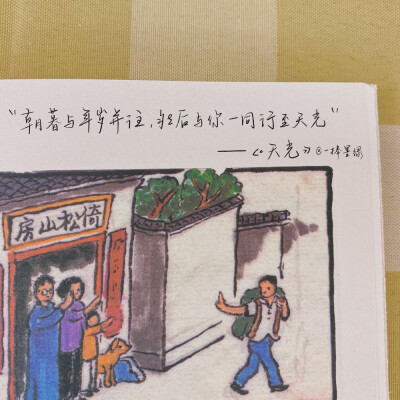 "朝暮与年岁并往，然后与你一同行至天光"
——《天光》@一
倚松山房